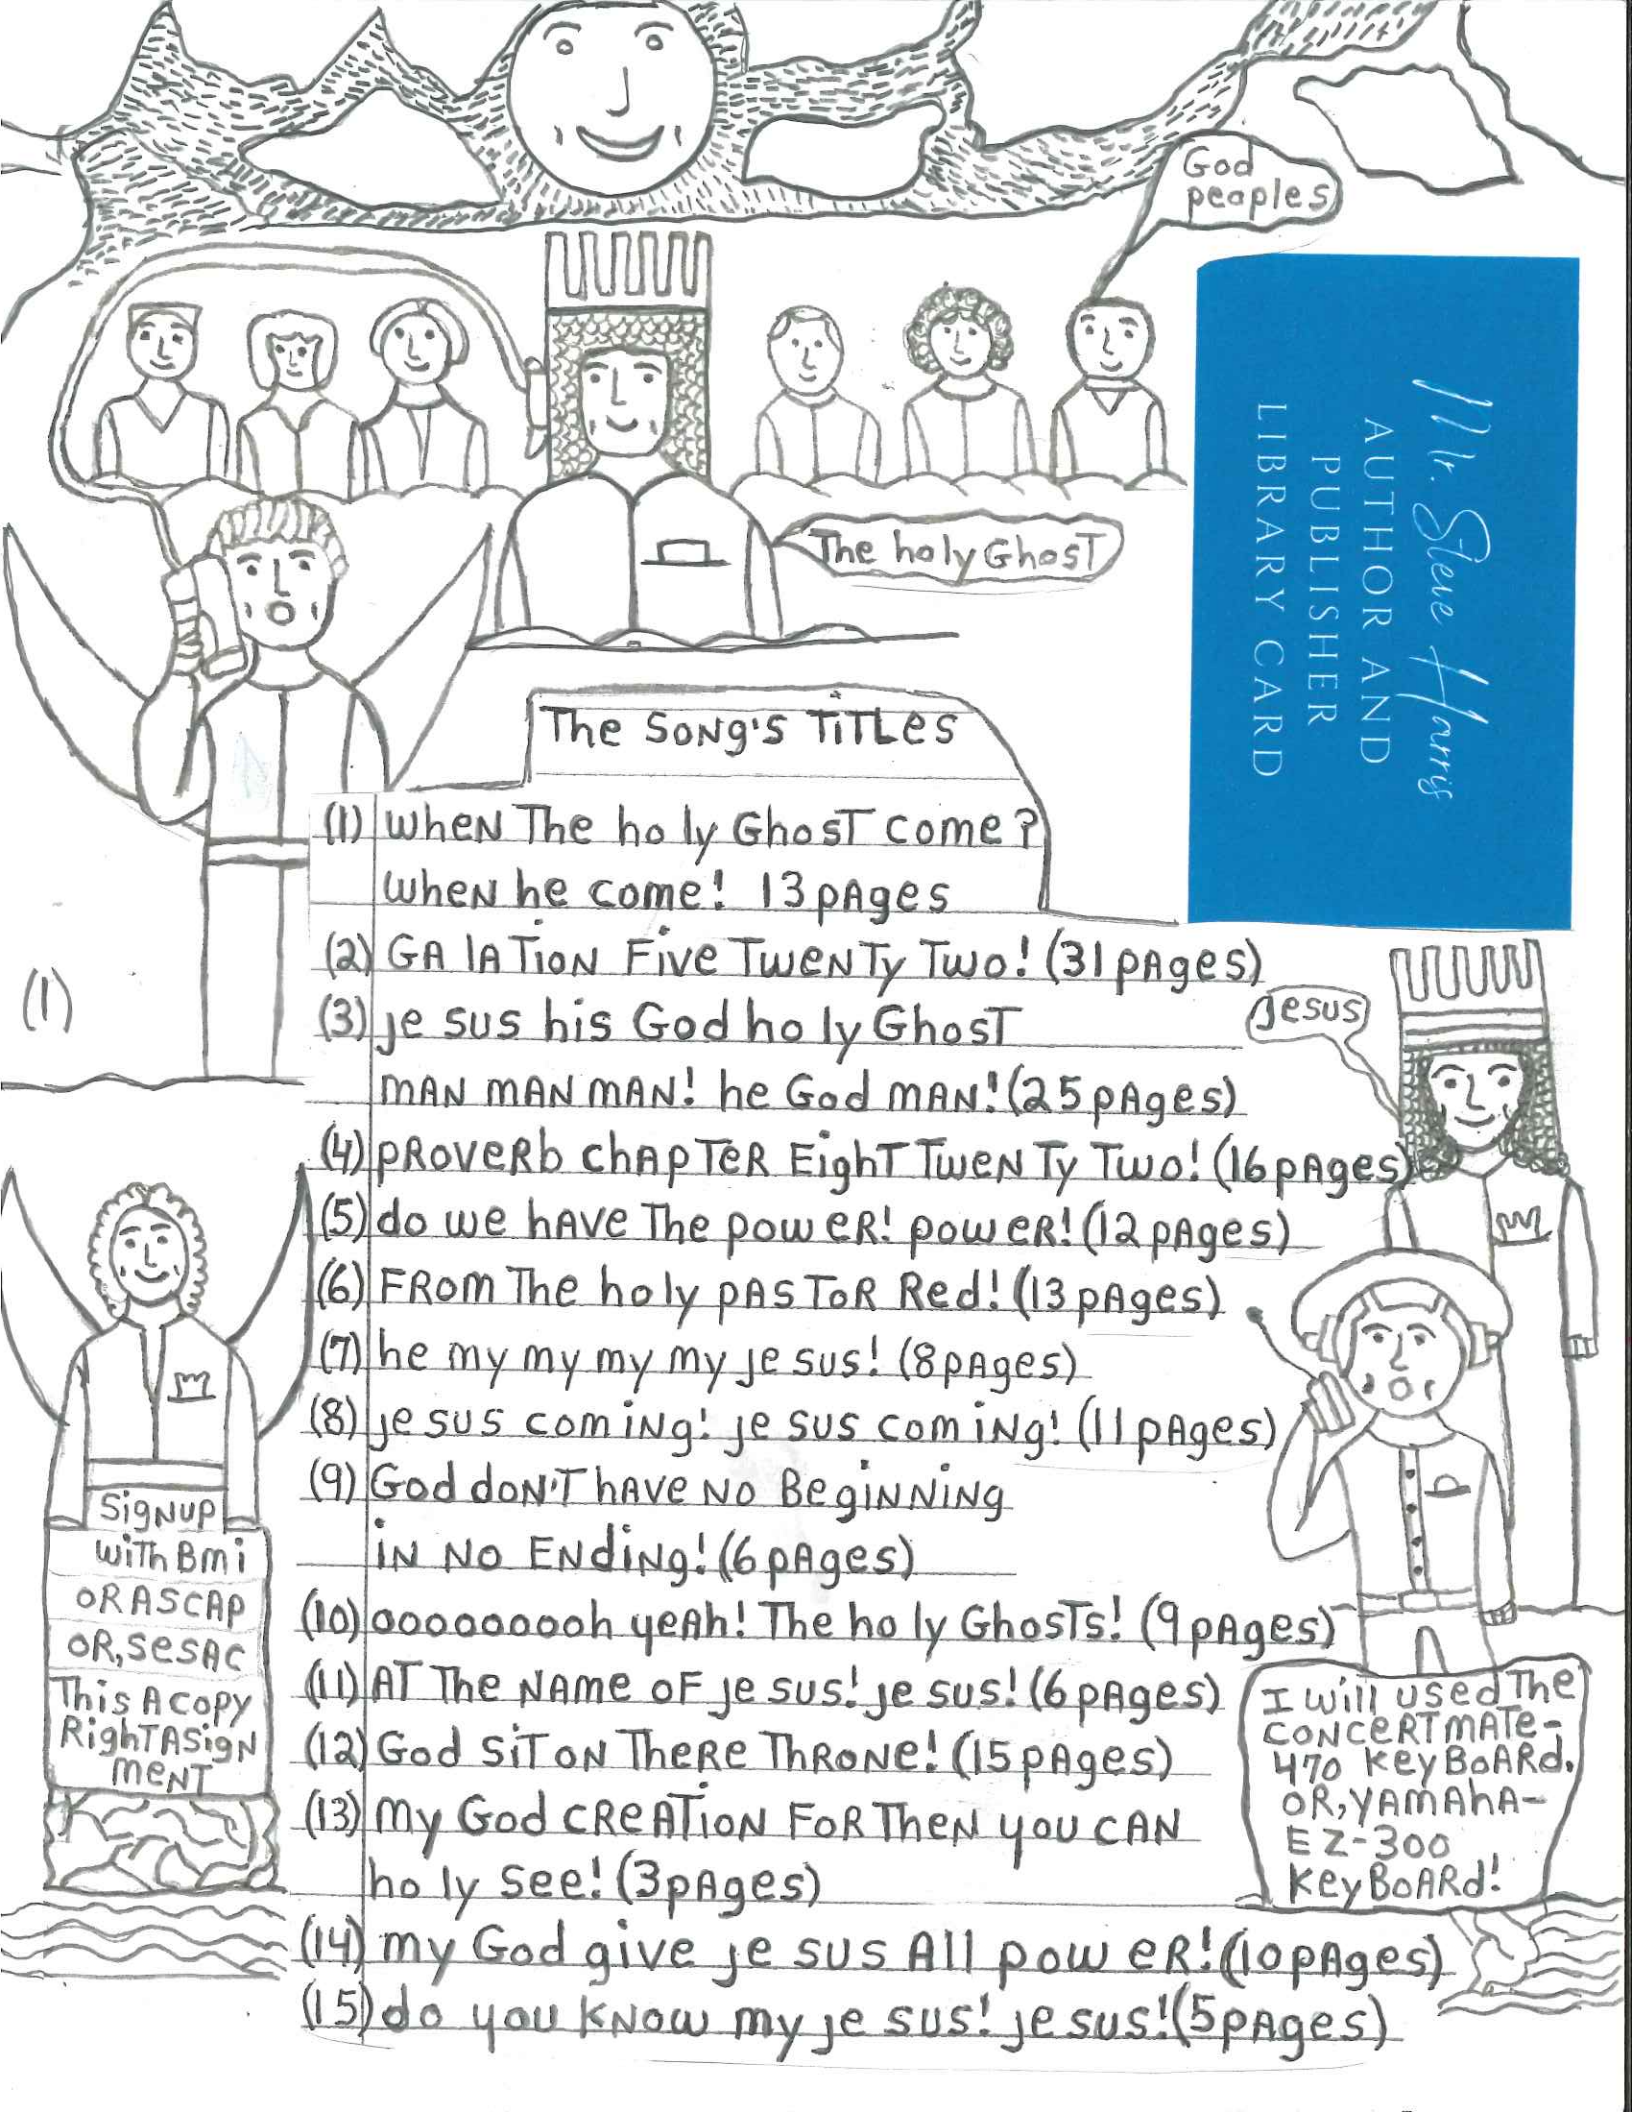 God
peoples
Mr. Steve Harris
AUTHOR AND
PUBLISHER
LIBRARY CARD
The holy GhosT
The SONg'S TiTLes
(1) wheN The holy GhosT come?
wheN he come! 13 pAges
(2) GAlATioN Five TweNTy Two! (31 pAges)
(3) jesus his God holy GhosT
mAN mAN mAN! he God mAN! (25 pAges)
(4) pRoveRb chApTeR EighT TweNTy Two! (16 pAges)
(5) do we hAve The poweR! poweR! (12 pAges)
(6) FRom The holy pAsToR Red! (13 pAges)
(7) he my my my my jesus! (8 pAges)
(8) jesus comiNg! jesus comiNg! (11 pAges)
(9) God doN'T hAve No BegiNNiNg
iN No ENdiNg! (6 pAges)
(10) oooooooooh yeAh! The holy GhosTs! (9 pAges)
(11) AT The NAme oF jesus! jesus! (6 pAges)
(12) God siT oN TheRe ThRoNe! (15 pAges)
(13) my God cReATioN FoR TheN you cAN
holy see! (3 pAges)
(14) my God give jesus All poweR! (10 pAges)
(15) do you kNow my jesus! jesus! (5 pAges)
(1)
jesus
SigNup
wiTh Bmi
oR ASCAp
oR, SeSAC
This A copy
RighT ASigN
meNT
I will used The
coNceRTmATe-
470 keyBoARd.
oR, yAmAhA-
EZ-300
keyBoARd!